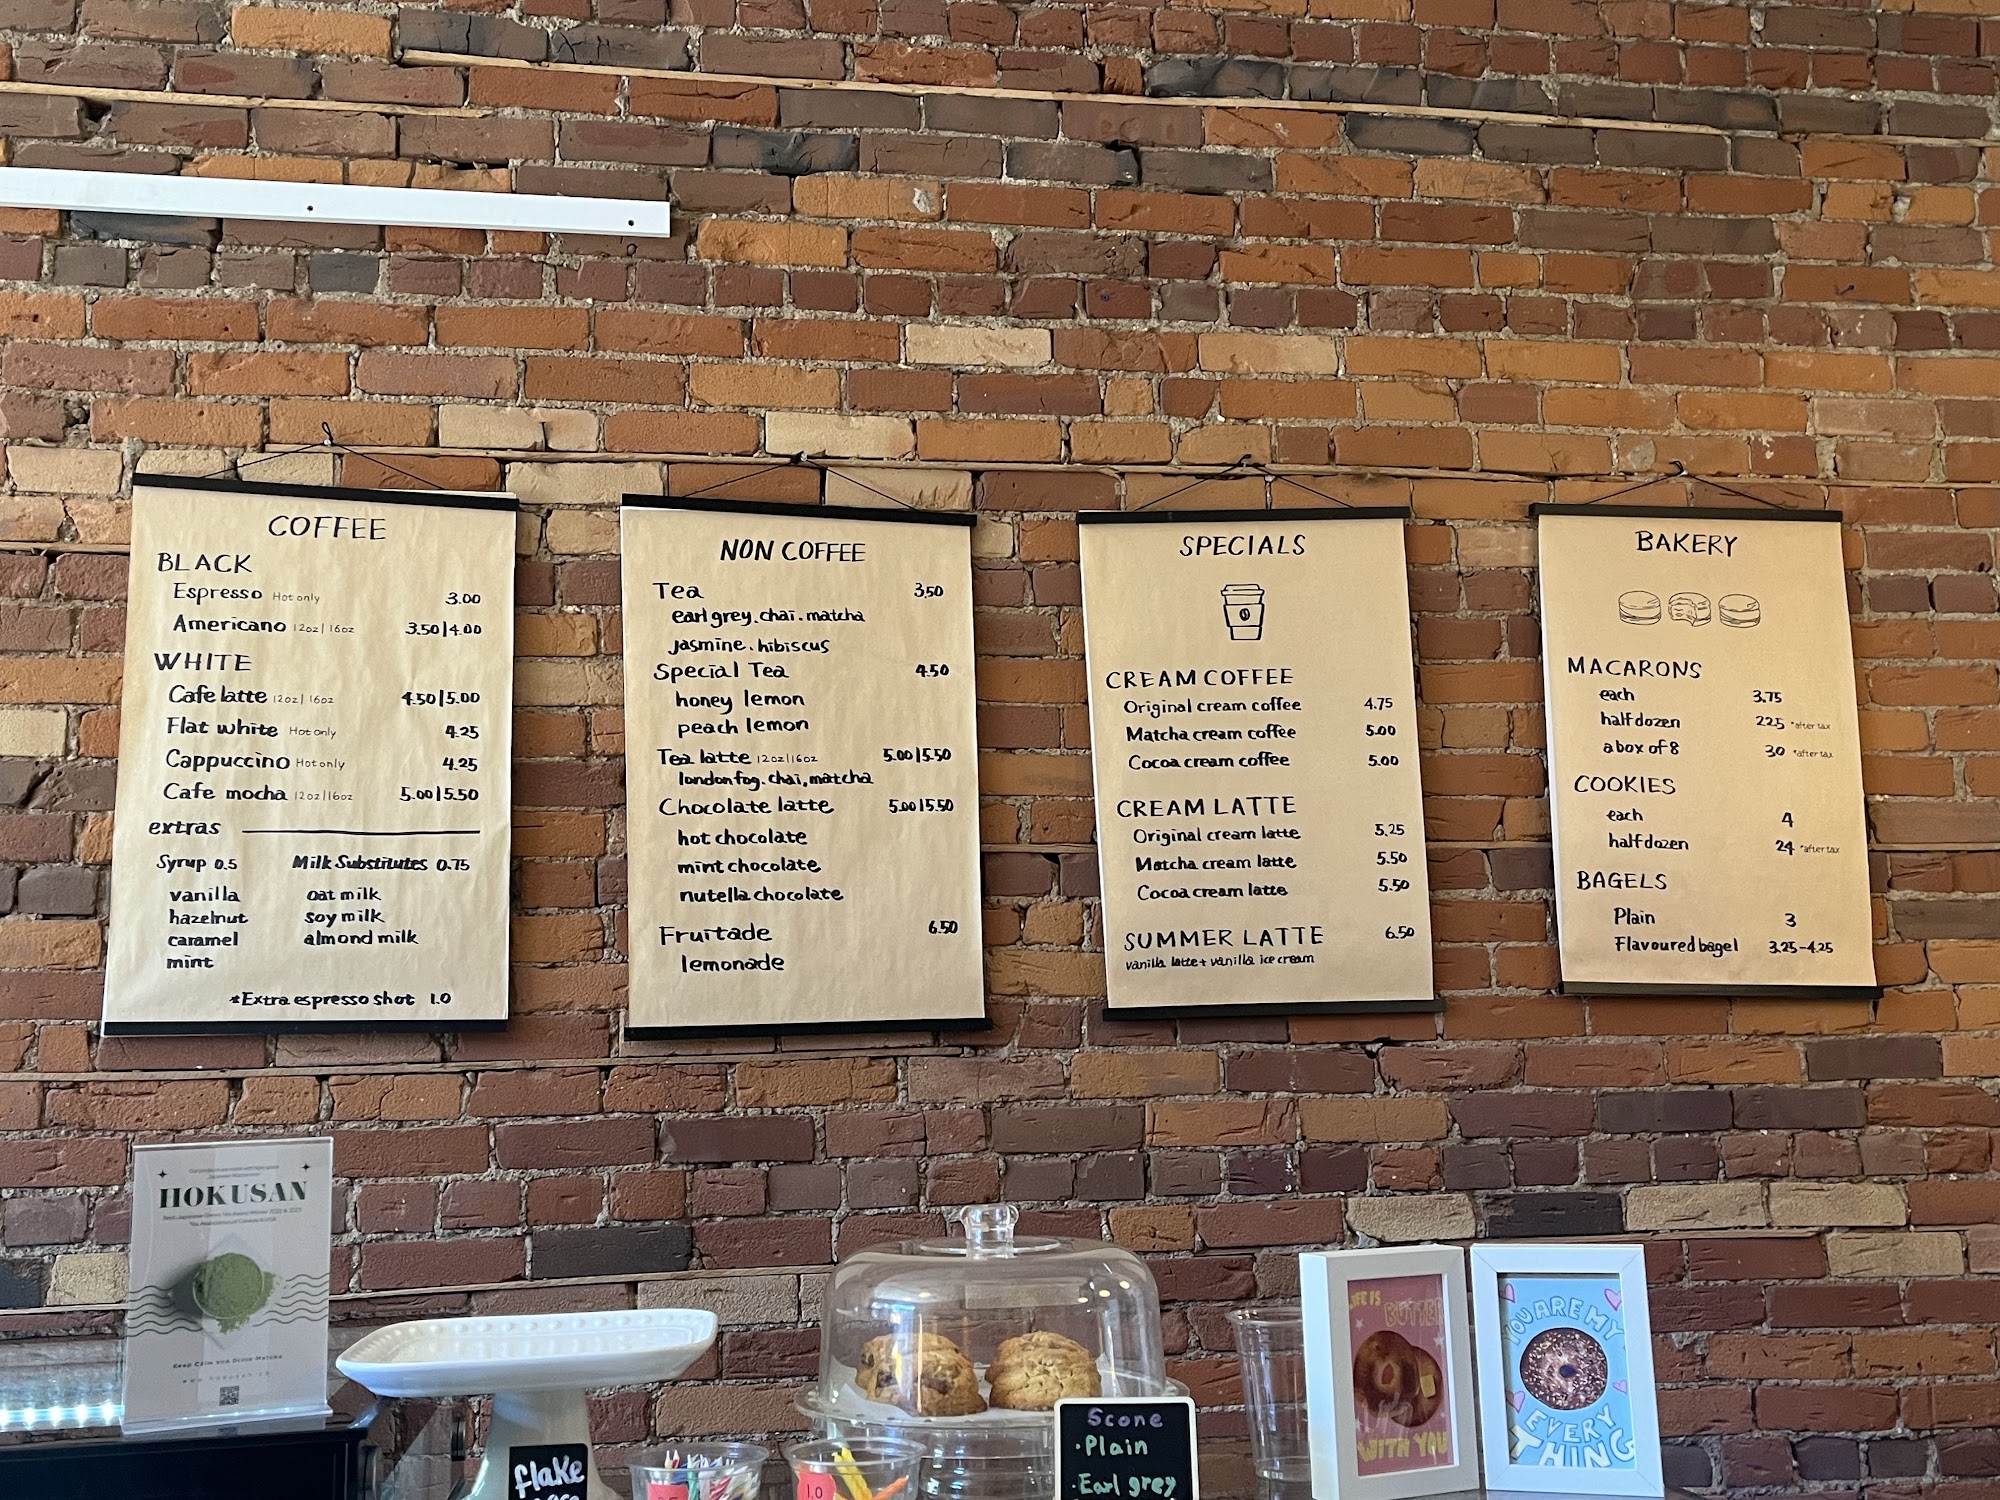 COFFEE
BLACK
Espresso Hot only 3.00
Americano 12oz | 16oz 3.50 | 4.00
WHITE
Cafe latte 12oz | 16oz 4.50 | 5.00
Flat white Hot only 4.25
Cappuccino Hot only 4.25
Cafe mocha 12oz | 16oz 5.00 | 5.50
extras
Syrup 0.5 Milk Substitutes 0.75
vanilla oat milk
hazelnut soy milk
caramel almond milk
mint
*Extra espresso shot 1.0
NON COFFEE
Tea 3.50
earl grey. chai. matcha
jasmine. hibiscus
Special Tea 4.50
honey lemon
peach lemon
Tea latte 12oz | 16oz 5.00 | 5.50
london fog. chai, matcha
Chocolate latte 5.00 | 5.50
hot chocolate
mint chocolate
nutella chocolate
Fruitade 6.50
lemonade
SPECIALS
CREAM COFFEE
Original cream coffee 4.75
Matcha cream coffee 5.00
Cocoa cream coffee 5.00
CREAM LATTE
Original cream latte 5.25
Matcha cream latte 5.50
Cocoa cream latte 5.50
SUMMER LATTE 6.50
vanilla latte + vanilla ice cream
BAKERY
MACARONS
each 3.75
half dozen 22.5 *after tax
a box of 8 30 *after tax
COOKIES
each 4
half dozen 24 *after tax
BAGELS
Plain 3
Flavoured bagel 3.25-4.25
HOKUSAN
Keep Calm and Drink Matcha
flake
Scone
·Plain
·Earl grey
1.0
LIFE IS
BUTTER
WITH YOU
YOU ARE MY
EVERY
THING